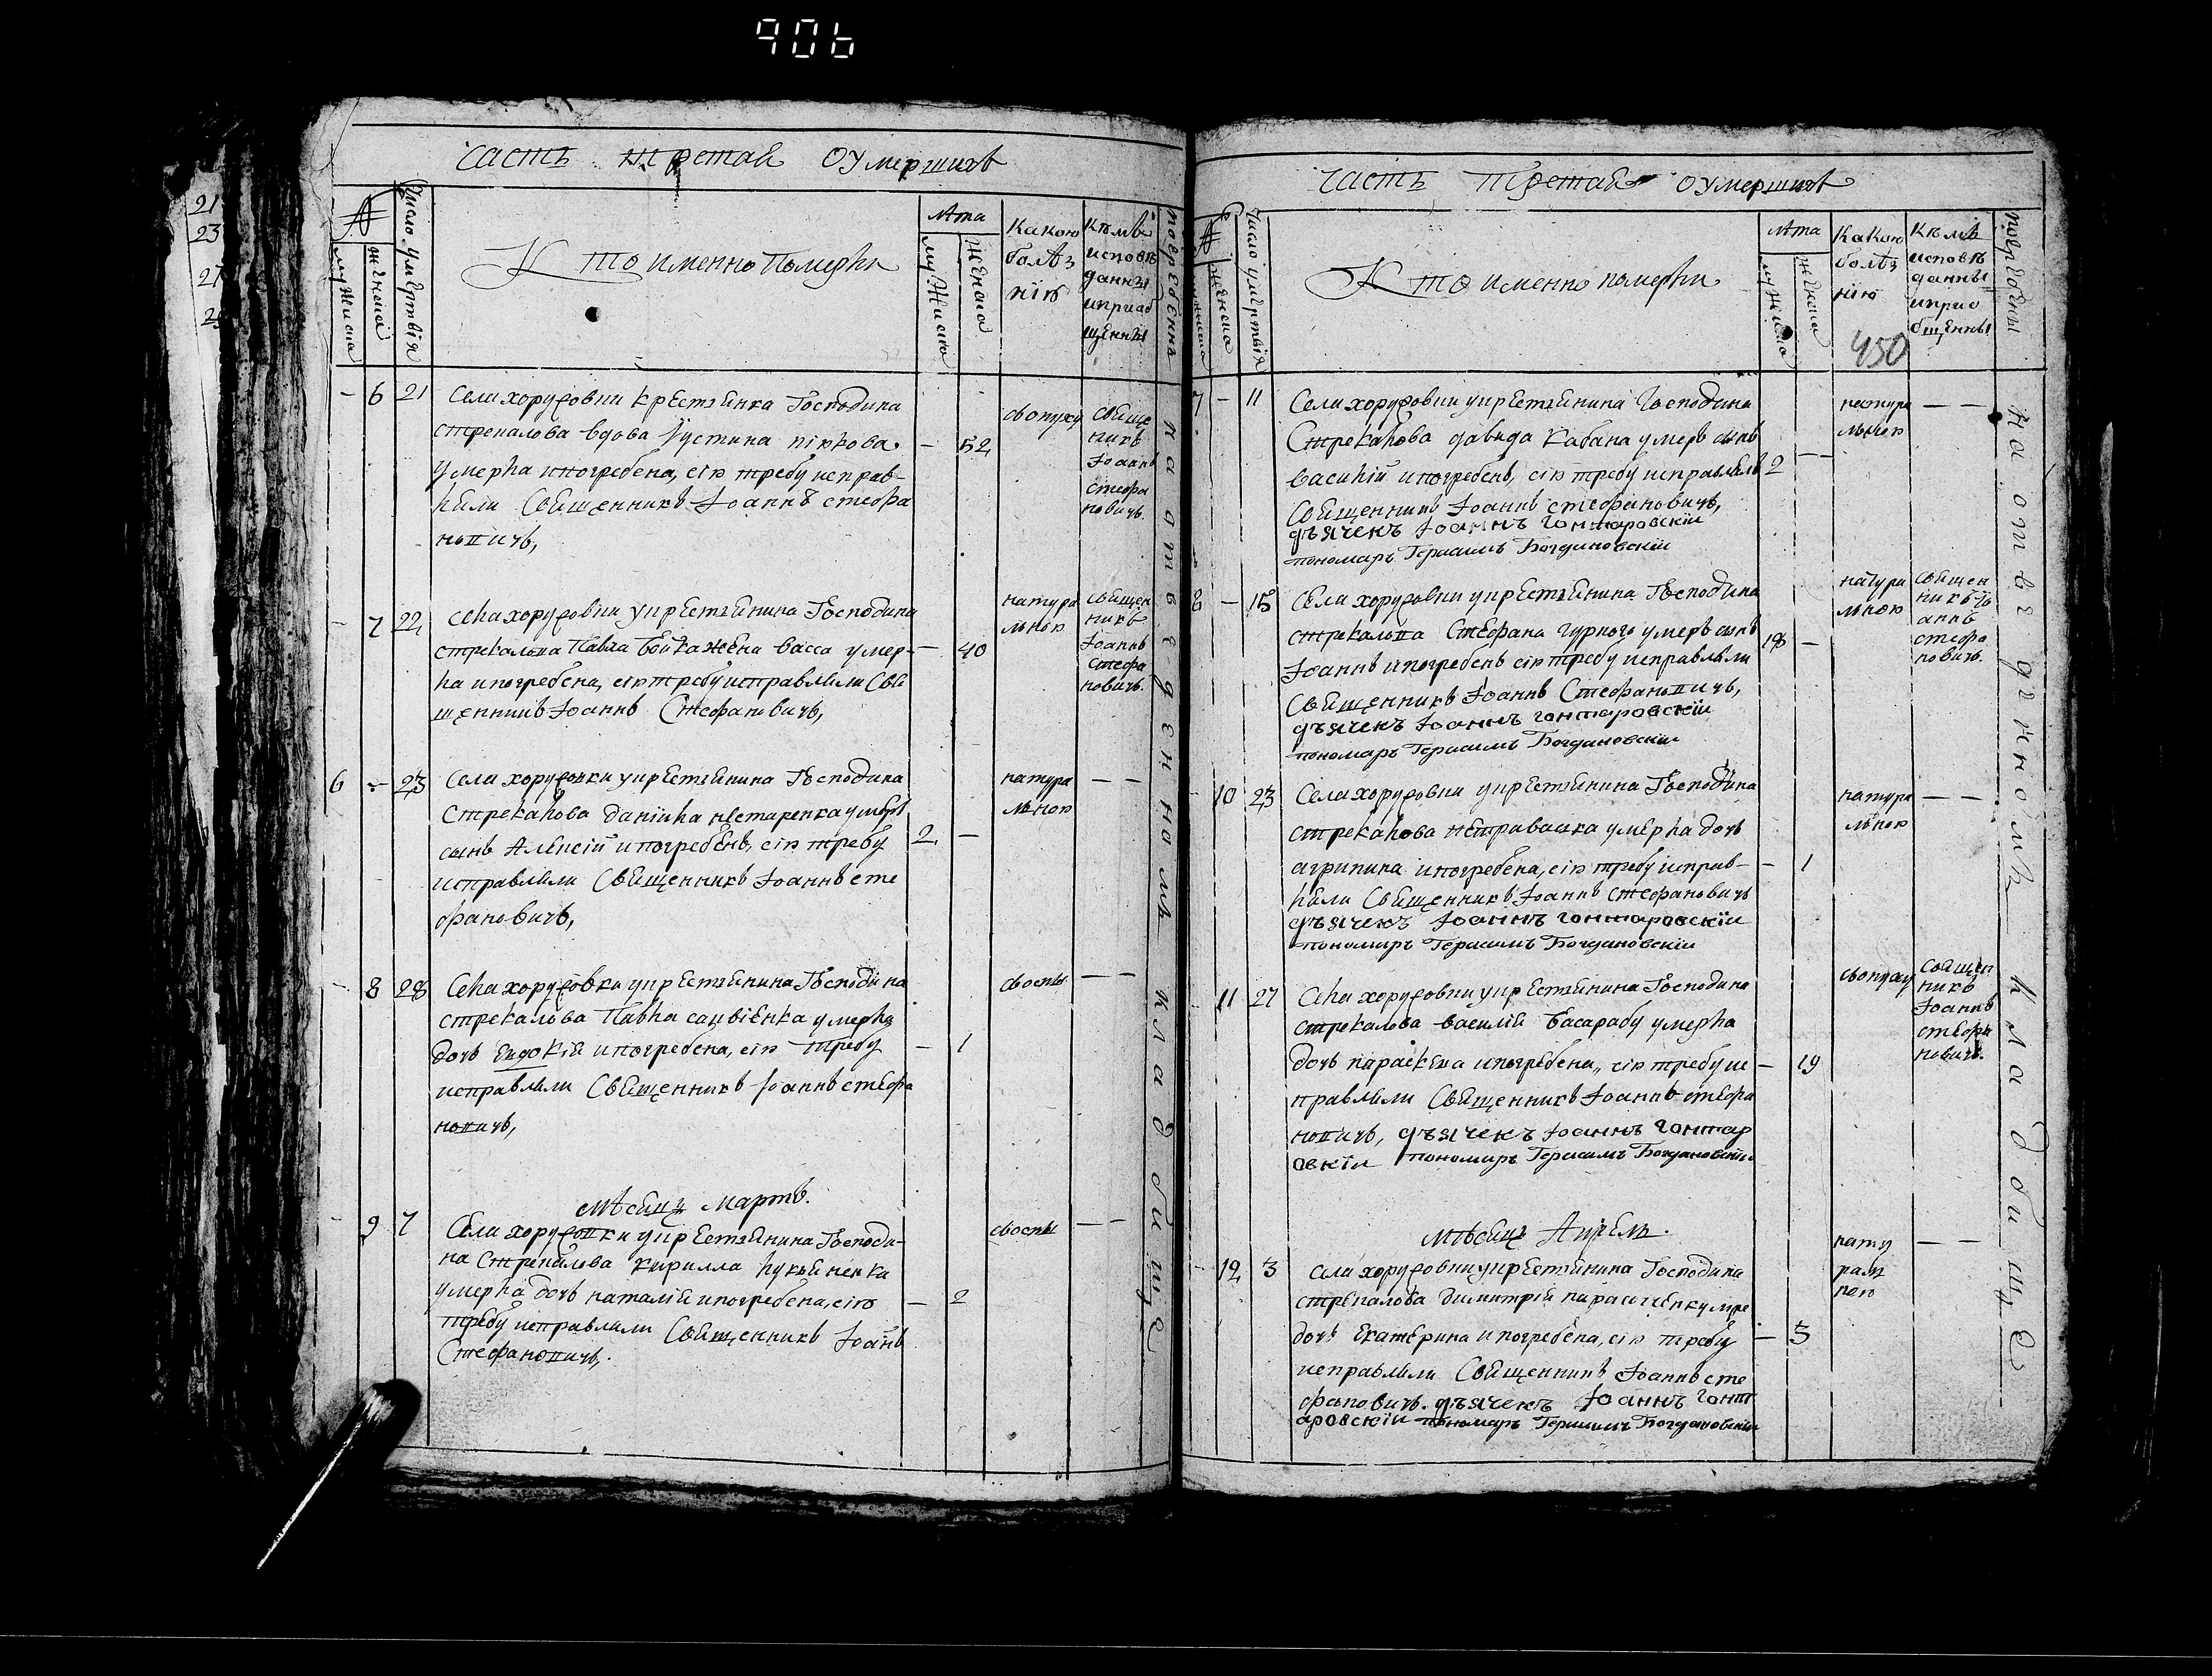 906
21
23
27
Часть третая оумершихъ
№
мужиска
женска
Число умертвія
Кто именно Померли
лѣта
мужиска
женска
Какою
болѣз
нію
Кѣмъ
исповѣ
данны
и приоб
щенны
погребенны
- 6 21 Села хоружовки крестянка Господина
стрекалова вдова Іустина
умерла и погребена, сію требу исправ-
- 52
ляли Священникъ Іоаннъ стефа
новичъ,
Свяще
никъ
Іоаннъ
Стефа
новичъ.
- 7 22 села хоружовки у крестянина Господина
стрекалова Павла жена васса умер-
- 40
ла и погребена, сію требу исправляли Свя
щенникъ Іоаннъ Стефановичъ,
натура
льною
Священ
никъ
Іоаннъ
Стефа
новичъ.
6 - 23 Села хоружовки у крестянина Господина
Стрекалова даніила нестаренка умеръ
сынъ Алексій и погребенъ, сію требу
2 -
исправляли Священникъ Іоаннъ сте
фановичъ,
натура
льною
— —
- 8 28 Села хоружовки у крестянина Господина
стрекалова Павла умерла
дочъ и погребена, сію требу
- 1
исправляли Священникъ Іоаннъ стефа
новичъ,
— —
мѣсяцъ мартъ.
- 9 7 Села хоружовки у крестянина Господи-
на Стрекалова кирилла лукяненка
умерла дочъ наталія и погребена, сію
- 2
требу исправляли Священникъ Іоаннъ
Стефановичъ,
— —
на отведенномъ кладбищѣ
Часть Третая оумершихъ
№
женска
Число умертвія
Кто именно померли
лѣта
мужиска
женска
Какою
болѣз
нію
450
Кѣмъ
исповѣ
данны
и прио
бщенны
погребенны
7 - 11 Села хоружовки у крестянина Господина
Стрекалова давида Кабана умеръ сынъ
василій и погребенъ, сію требу исправляли
2 —
Священникъ Іоаннъ стефановичъ,
дъячекъ Іоаннъ Гонтаровскіи
пономаръ Герасимъ Богдановскіи
натура
льною
— —
8 - 15 Села хоружовки у крестянина Господина
стрекалова Стефана гурного умеръ сынъ
Іоаннъ и погребенъ сію требу исправляли
18 -
Священникъ Іоаннъ Стефановичъ,
дъячекъ Іоаннъ гонтаровскіи
пономаръ Герасимъ Богдановскіи
натура
льною
Священ
никъ Іо
аннъ
стефа
новичъ.
- 10 23 Села хоружовки у крестянина Господина
стрекалова умерла дочъ
агрипина и погребена, сію требу исправ-
- 1
ляли Священникъ Іоаннъ Стефановичъ
дъячекъ Іоаннъ гонтаровскіи
пономаръ Герасимъ Богдановскіи
натура
льною
— —
- 11 27 Села хоружовки у крестянина Господина
стрекалова василія Басарабу умерла
дочъ параскева и погребена, сію требу ис
- 19
правляли Священникъ Іоаннъ стефа
новичъ, дъячекъ Іоаннъ Гонтар
овскіи пономаръ Герасимъ Богдановскіи
Священ
никъ
Іоаннъ
стефа
новичъ.
мѣсяцъ Апрель.
- 12 3 Села хоружовки у крестянина Господина
стрекалова димитрія умре
дочъ Екатерина и погребена, сію требу
- 3
исправляли Священникъ Іоаннъ сте
фановичъ. дъячекъ Іоаннъ Гонт
аровскіи пономаръ Герасимъ Богдановскіи
нату
рал
ною
— —
на отведенномъ кладбище